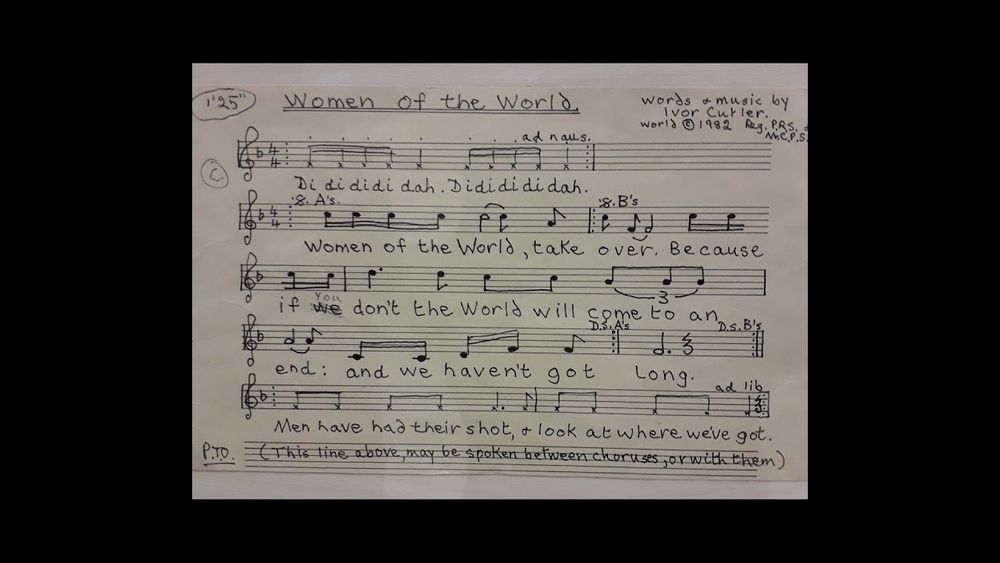 1'25"
Women of the World.
words & music by
Ivor Cutler.
world © 1982 Reg. P.R.S. &
M.C.P.S.
ad naus.
4 4
C.
Di di di di di dah. Di di di di di dah.
:S. A's.
:S. B's
4 4
Women of the World, take over. Because
you
if we don't the World will come to an
3
D.S. A's
D.S. B's
end: and we haven't got long.
ad lib
Men have had their shot, & look at where we've got.
P.T.O. (This line above, may be spoken between choruses, or with them)